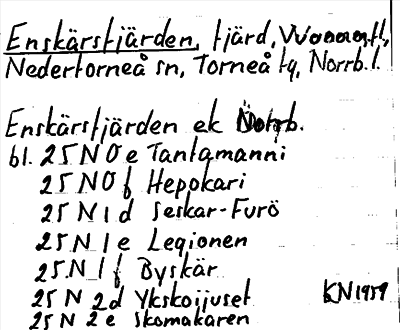 Enskärsfjärden, fjärd,
Nedertorneå sn, Torneå tg, Norrb. l.
Enskärsfjärden ek Norrb.
bl. 25 N 0 e Tantamanni
25 N 0 f Hepokari
25 N 1 d Seskar-Furö
25 N 1 e Legionen
25 N 1 f Byskär
25 N 2d Ykskoijuset KN 1959
25 N 2 e Skomakaren